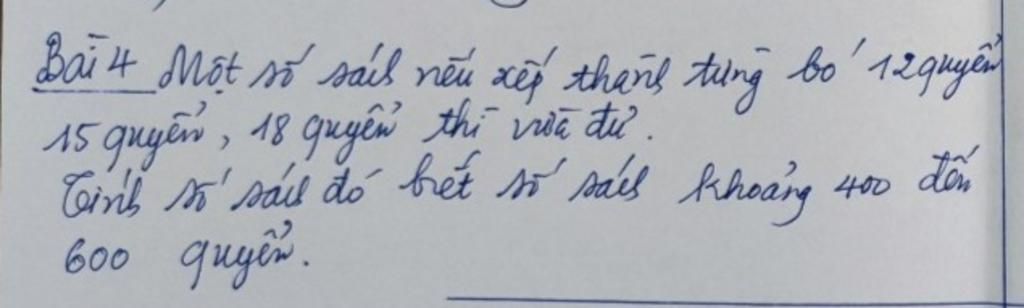 Bài 4 Một số sách nếu xếp thành từng bó 12 quyển
15 quyển, 18 quyển thì vừa đủ.
Tính số sách đó biết số sách khoảng 400 đến
600 quyển.